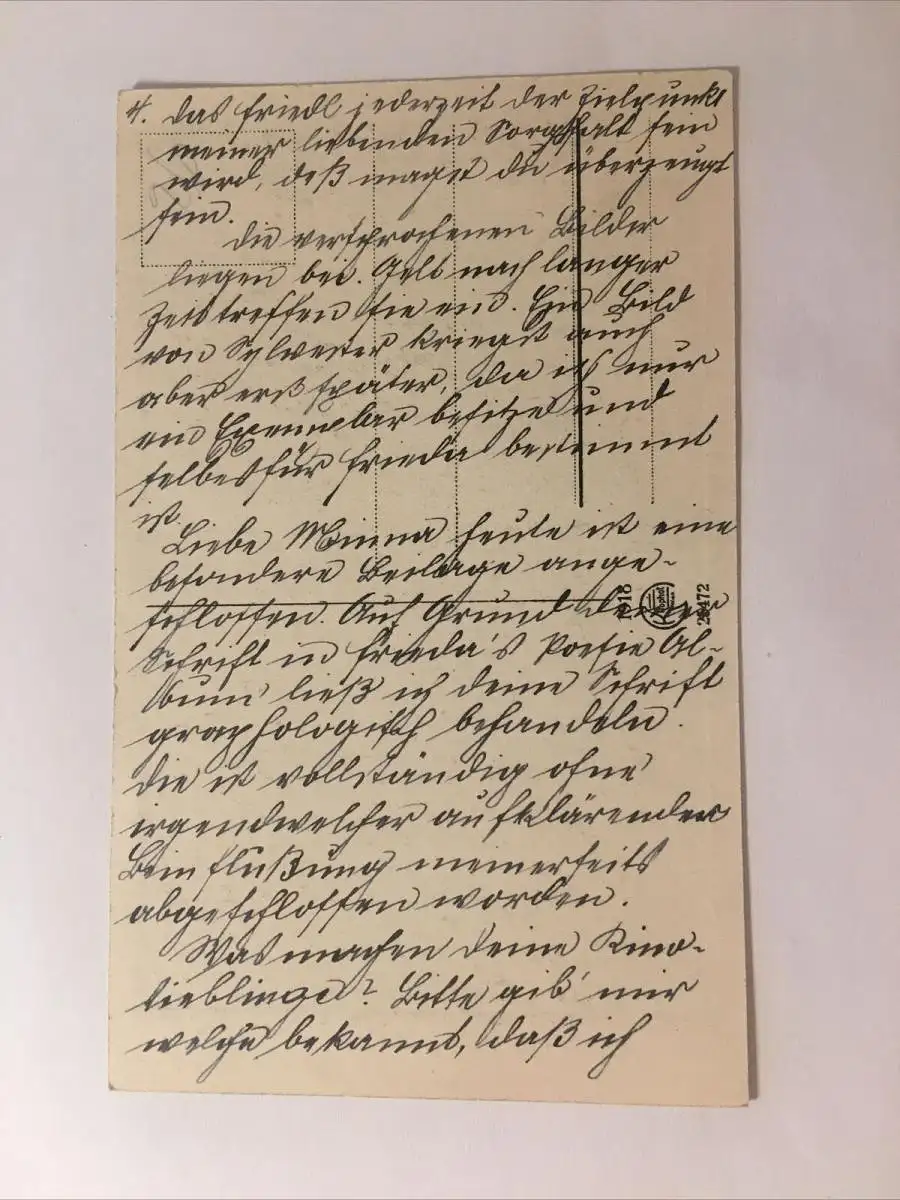 4. Das Friedl jederzeit der Zielpunkt
meiner liebenden Sorgfalt sein
wird, deß magst du überzeugt
sein.
Die versprochenen Bilder
liegen bei. Gelt nach langer
Zeit treffen sie ein. Ein Bild
von Sylvester kriegst auch
aber erst später, da ich nur
ein Exemplar besitze und
selbes für Frieda bestimmt
ist.
Liebe Minna heute ist eine
besondere Beilage ange-
schlossen. Auf Grund deiner
Schrift in Frieda's Poesie Al-
bum ließ ich deine Schrift
graphologisch behandeln.
Die ist vollständig ohne
irgendwelcher aufklärender
Beinflußung meinerseits
abgeschlossen worden.
Was machen deine Kino-
lieblinge? Bitte gib' mir
welche bekannt, daß ich
1918